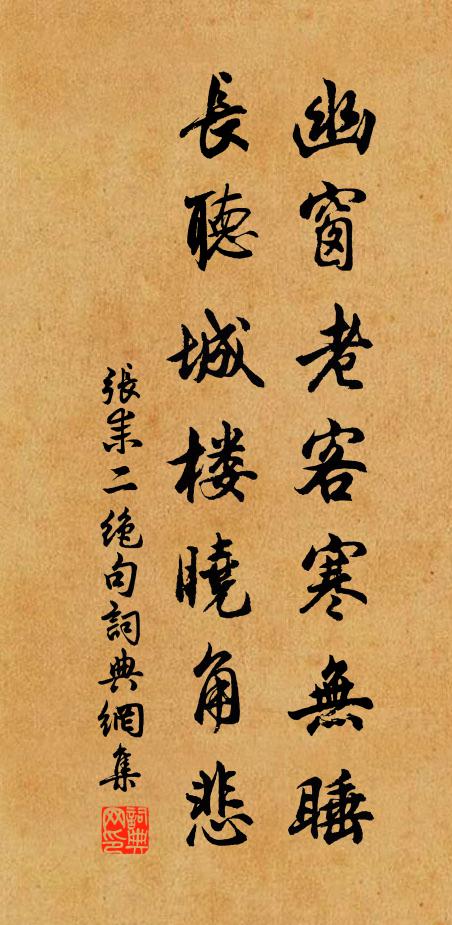 幽窗老客寒無睡
長聽城楼曉角悲
張耒二絶句詞典網集
詞典网印